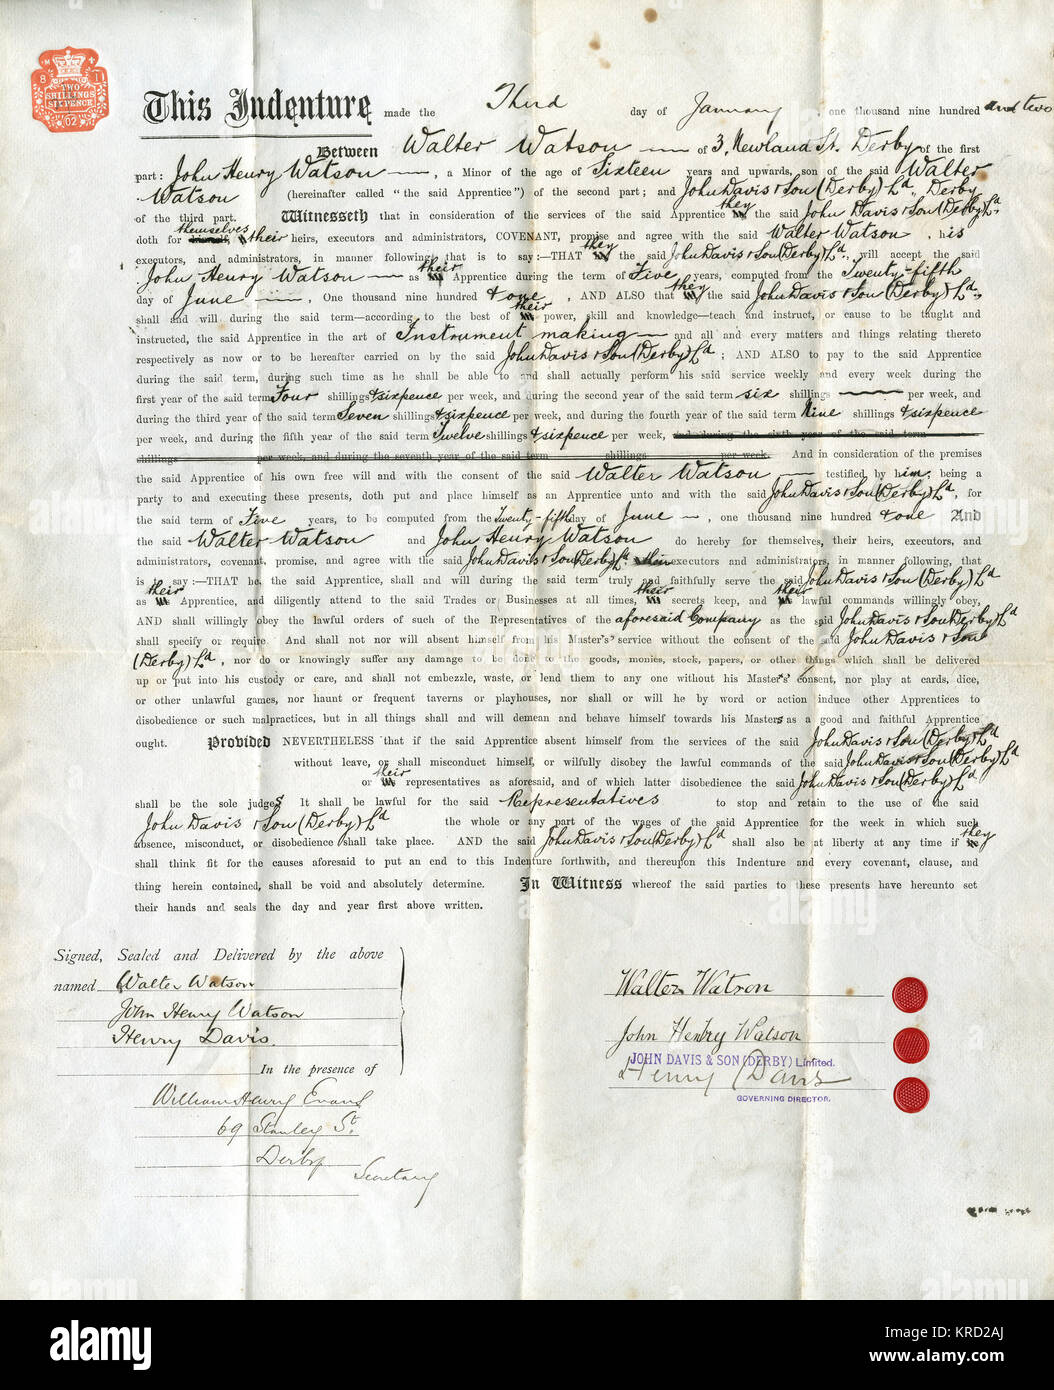 TWO
SHILLINGS
SIXPENCE
02
This Indenture made the Third day of January one thousand nine hundred and two
Between Walter Watson of 3, Newland St. Derby of the first
part: John Henry Watson, a Minor of the age of Sixteen years and upwards, son of the said Walter
Watson (hereinafter called "the said Apprentice") of the second part; and John Davis & Son (Derby) Ld., Derby
of the third part. Witnesseth that in consideration of the services of the said Apprentice they the said John Davis & Son (Derby) Ld.
doth for themselves their heirs, executors and administrators, COVENANT, promise and agree with the said Walter Watson, his
executors, and administrators, in manner following, that is to say:—THAT they the said John Davis & Son (Derby) Ld., will accept the said
John Henry Watson as their Apprentice during the term of Five years, computed from the Twenty-fifth
day of June, One thousand nine hundred & one, AND ALSO that they the said John Davis & Son (Derby) Ld.,
shall and will during the said term—according to the best of their power, skill and knowledge—teach and instruct, or cause to be taught and
instructed, the said Apprentice in the art of Instrument making and all and every matters and things relating thereto
respectively as now or to be hereafter carried on by the said John Davis & Son (Derby) Ld; AND ALSO to pay to the said Apprentice
during the said term, during such time as he shall be able to and shall actually perform his said service weekly and every week during the
first year of the said term Four shillings & sixpence per week, and during the second year of the said term six shillings per week, and
during the third year of the said term Seven shillings & sixpence per week, and during the fourth year of the said term Nine shillings & sixpence
per week, and during the fifth year of the said term Twelve shillings & sixpence per week, and during the sixth year of the said term
shillings per week, and during the seventh year of the said term shillings per week. And in consideration of the premises
the said Apprentice of his own free will and with the consent of the said Walter Watson testified by him being a
party to and executing these presents, doth put and place himself as an Apprentice unto and with the said John Davis & Son (Derby) Ld, for
the said term of Five years, to be computed from the Twenty-fifth day of June, one thousand nine hundred & one And
the said Walter Watson and John Henry Watson do hereby for themselves, their heirs, executors, and
administrators, covenant, promise, and agree with the said John Davis & Son (Derby) Ld. their executors and administrators, in manner following, that
is to say:—THAT he, the said Apprentice, shall and will during the said term truly and faithfully serve the said John Davis & Son (Derby) Ld
as their Apprentice, and diligently attend to the said Trades or Businesses at all times, their secrets keep, and their lawful commands willingly obey,
AND shall willingly obey the lawful orders of such of the Representatives of the aforesaid Company as the said John Davis & Son (Derby) Ld
shall specify or require. And shall not nor will absent himself from his Master's' service without the consent of the said John Davis & Son
(Derby) Ld, nor do or knowingly suffer any damage to be done to the goods, monies, stock, papers, or other things which shall be delivered
up or put into his custody or care, and shall not embezzle, waste, or lend them to any one without his Master's consent, nor play at cards, dice,
or other unlawful games, nor haunt or frequent taverns or playhouses, nor shall or will he by word or action induce other Apprentices to
disobedience or such malpractices, but in all things shall and will demean and behave himself towards his Masters as a good and faithful Apprentice
ought. Provided NEVERTHELESS that if the said Apprentice absent himself from the services of the said John Davis & Son (Derby) Ld
without leave, or shall misconduct himself, or wilfully disobey the lawful commands of the said John Davis & Son (Derby) Ld
or their representatives as aforesaid, and of which latter disobedience the said John Davis & Son (Derby) Ld
shall be the sole judges It shall be lawful for the said Representatives to stop and retain to the use of the said
John Davis & Son (Derby) Ld the whole or any part of the wages of the said Apprentice for the week in which such
absence, misconduct, or disobedience shall take place. AND the said John Davis & Son (Derby) Ld shall also be at liberty at any time if they
shall think fit for the causes aforesaid to put an end to this Indenture forthwith, and thereupon this Indenture and every covenant, clause, and
thing herein contained, shall be void and absolutely determine. In Witness whereof the said parties to these presents have hereunto set
their hands and seals the day and year first above written.
Signed, Sealed and Delivered by the above
named Walter Watson
John Henry Watson
Henry Davis.
In the presence of
William Henry Evans
69 Stanley St.
Derby
Secretary
Walter Watson
John Henry Watson
JOHN DAVIS & SON (DERBY) Limited.
Henry Davis
GOVERNING DIRECTOR.
alamy
Image ID: KRD2AJ
www.alamy.com